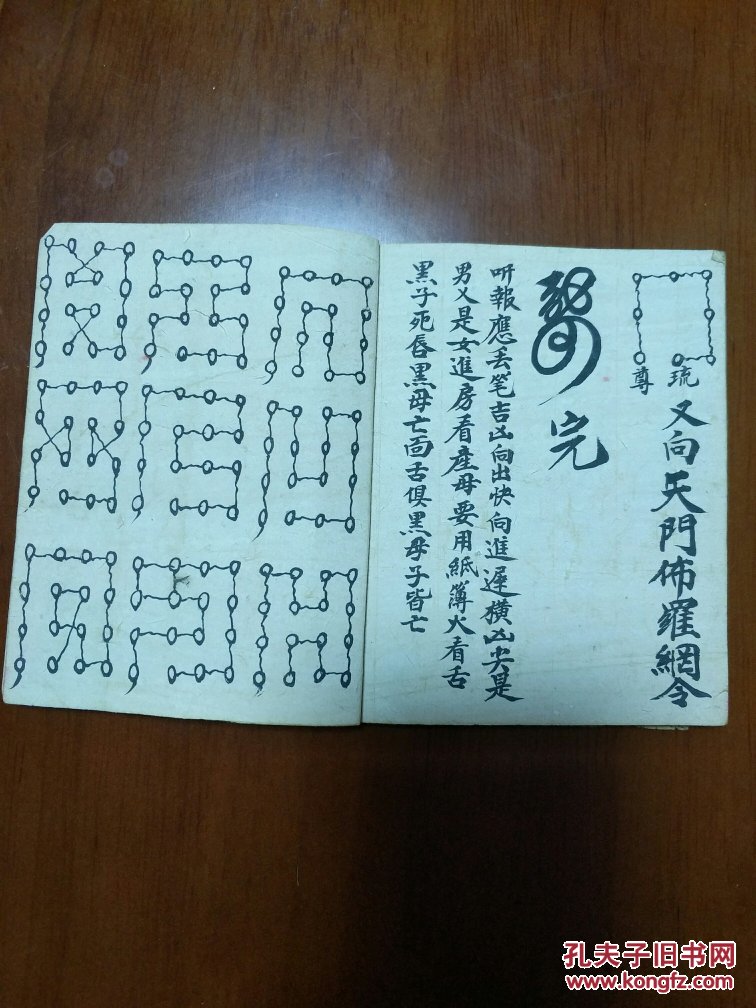 琉
尊
又向天門佈羅網令
完
听報應丢笔吉凶向出快向進遲横凶尖是
男乂是女進房看産母要用紙薄火看舌
黑子死唇黑母亡面舌俱黑母子皆亡
孔夫子旧书网
www.kongfz.com